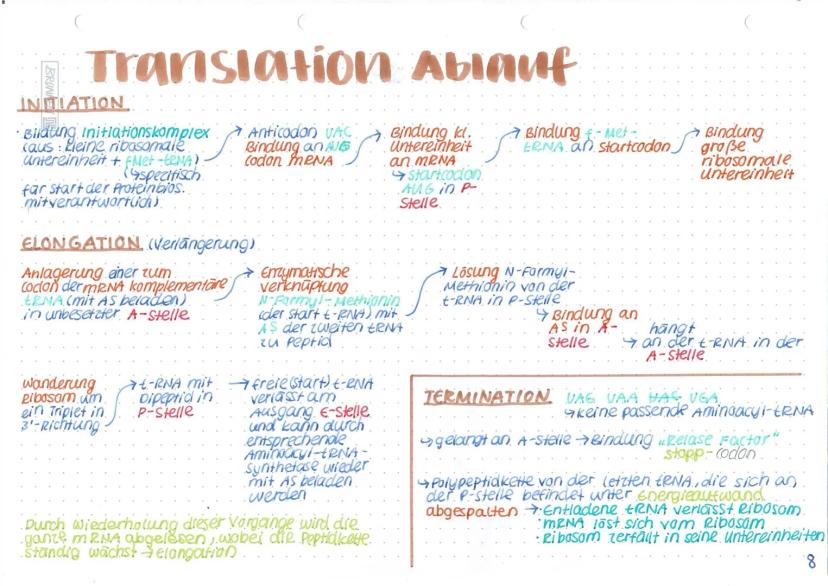 Translation Ablauf
BRUNNEN
INITIATION
· Bildung Initiationskomplex
(aus: kleine ribosomale
Untereinheit + fMet-tRNA)
↳ spezifisch
für Start der Proteinbios.
mitverantwortlich)
Anticodon UAC
Bindung an AUG
codon mRNA
Bindung kl.
Untereinheit
an mRNA
↳ Startcodon
AUG in P-
Stelle
Bindung f-Met-
tRNA an Startcodon
Bindung
große
ribosomale
Untereinheit
ELONGATION (Verlängerung)
Anlagerung einer zum
Codon der mRNA komplementäre
tRNA (mit AS beladen)
in unbesetzter A-Stelle
Enzymatische
Verknüpfung
N-Formyl-Methionin
(der Start t-RNA) mit
AS der zweiten tRNA
zu Peptid
Lösung N-Formyl-
Methionin von der
t-RNA in P-Stelle
↳ Bindung an
AS in A-
Stelle
hängt
↳ an der t-RNA in der
A-Stelle
Wanderung
Ribosom um
ein Triplet in
3'-Richtung
→ t-RNA mit
Dipeptid in
P-Stelle
→ freie (Start) t-RNA
verlässt am
Ausgang E-Stelle
und kann durch
entsprechende
Aminoacyl-tRNA-
Synthetase wieder
mit AS beladen
werden
Durch Wiederholung dieser Vorgänge wird die
ganze mRNA abgelesen, wobei die Peptidkette
ständig wächst → Elongation
TERMINATION UAG UAA UAG UGA
↳ keine passende Aminoacyl-tRNA
↳ gelangt an A-Stelle → Bindung „Relase Factor"
stopp-codon
↳ Polypeptidkette von der letzten tRNA, die sich an
der P-Stelle befindet unter Energieaufwand
abgespalten → · Entladene tRNA verlässt Ribosom
· mRNA löst sich vom Ribosom
· Ribosom zerfällt in seine Untereinheiten
8